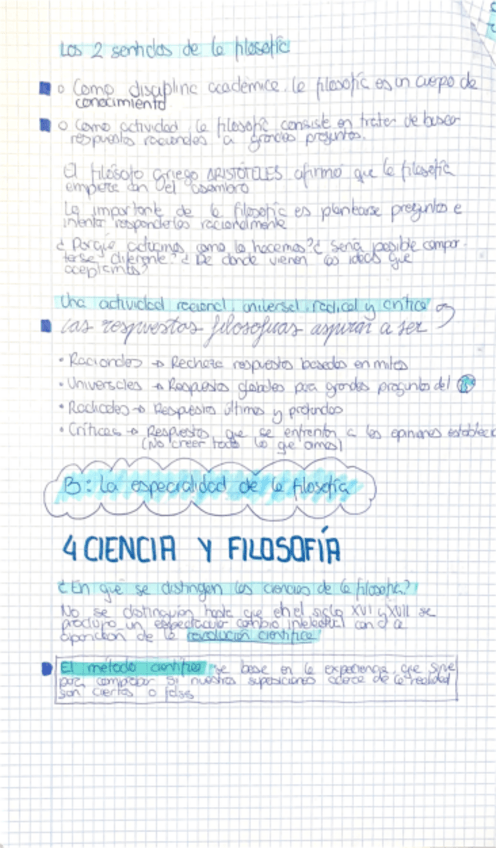 Los 2 sentidos de la filosofía
Como disciplina académica la filosofía es un cuerpo de
conocimiento
Como actividad la filosofía consiste en tratar de buscar
respuestas racionales a grandes preguntas.
El filósofo Griego ARISTÓTELES afirmó que la filosofía
empieza con el asombro
Lo importante de la filosofía es plantearse preguntas e
intentar responderlas racionalmente
¿Porqué actuamos como lo hacemos? ¿Sería posible compor-
tarse diferente? ¿De donde vienen las ideas que
aceptamos?
Una actividad racional, universal, radical y crítica
Las respuestas filosóficas aspiran a ser
• Racionales → Rechaza respuestas basadas en mitos
• Universales → Respuestas globales para grandes preguntas del
• Radicales → Respuestas últimas y profundas
• Críticas → Respuestas que se enfrentan a las opiniones establec
(No creer todo lo que oímos)
B: La especialidad de la filosofía
4 CIENCIA Y FILOSOFÍA
¿En que se distinguen las ciencias de la filosofía?
No se distinguían hasta que en el siglo XVI y XVII se
produjo un espectacular cambio intelectual con la
aparición de la revolución científica
El método científico se basa en la experiencia, que sirve
para comprobar si nuestras suposiciones acerca de la realidad
son ciertas o falsas